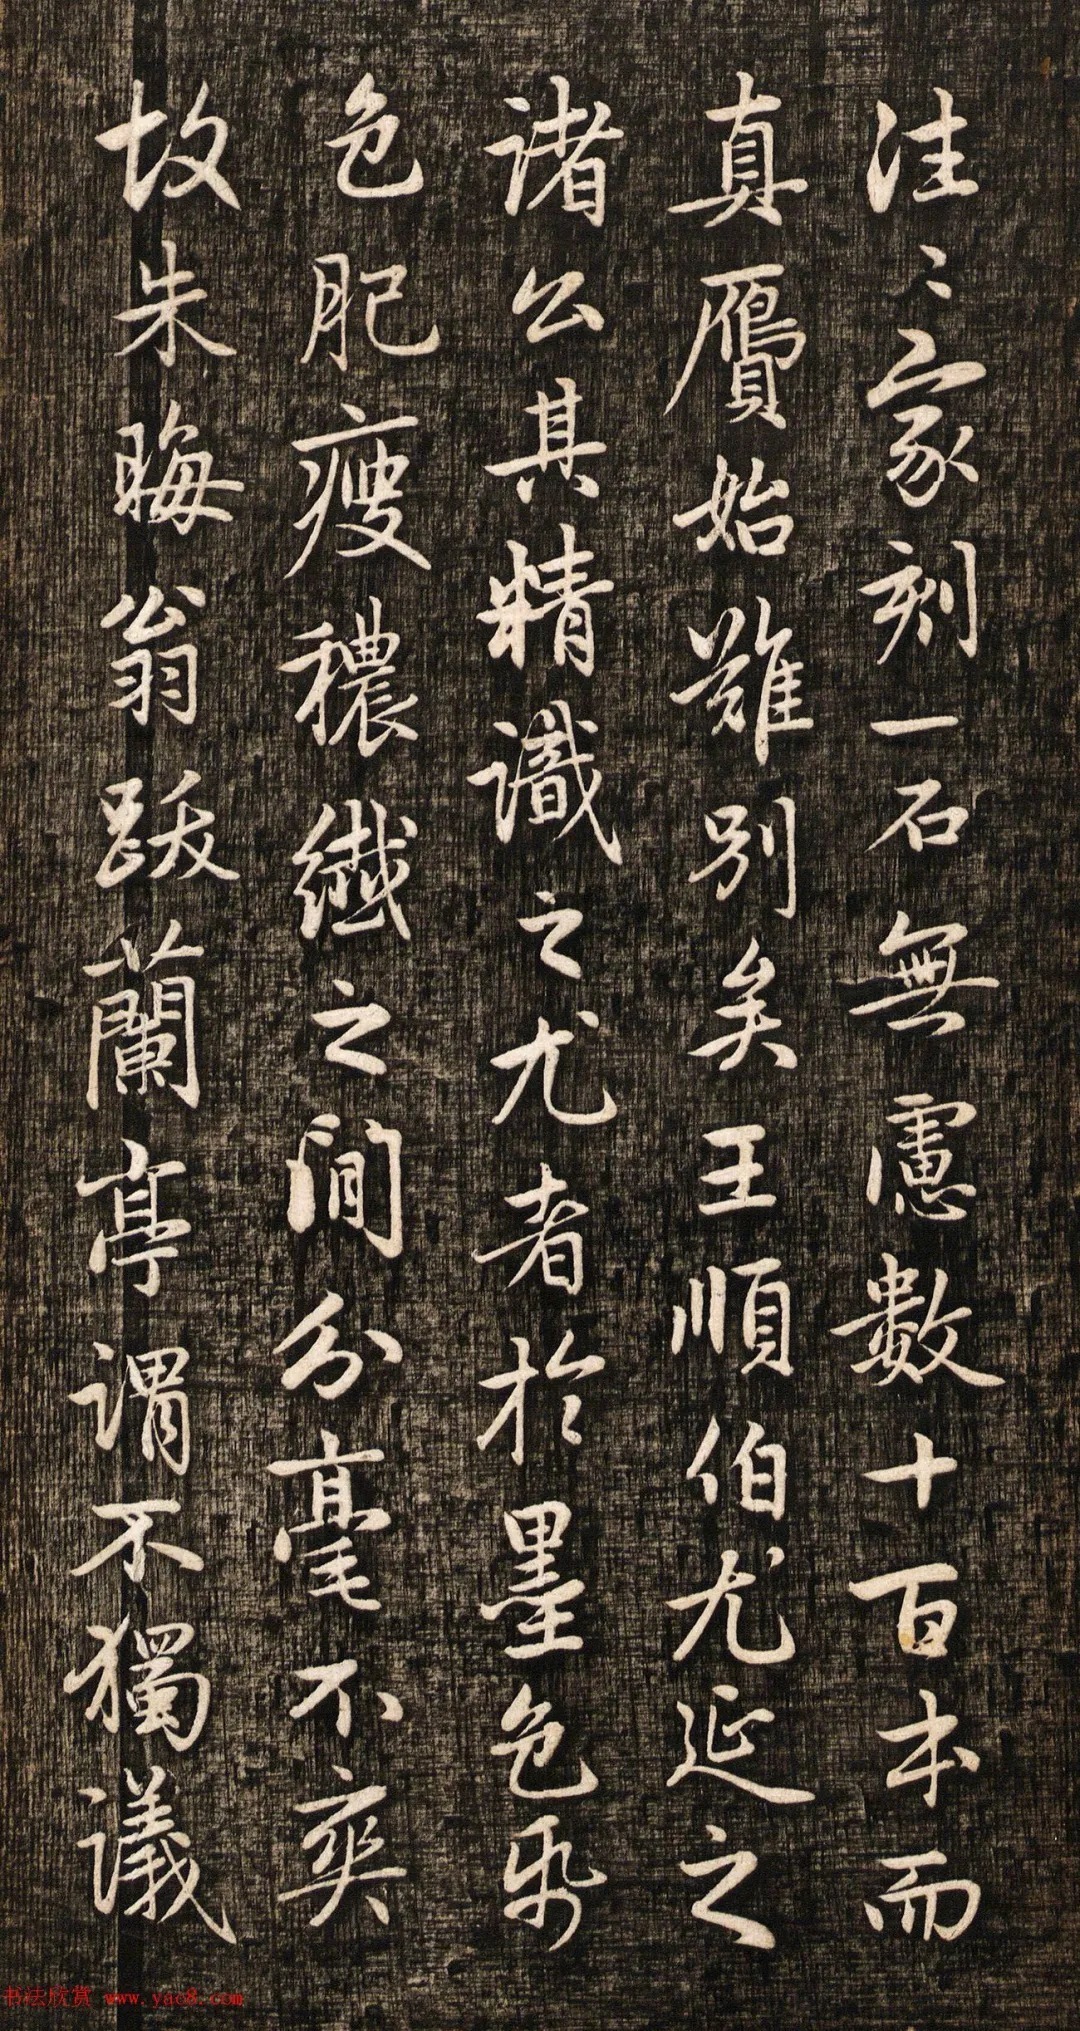 往〻家刻一石無慮數十百本而
真贋始難別矣王順伯尤延之
諸公其精識之尤者於墨色帋
色肥瘦穠纖之間分毫不爽
故朱晦翁跋蘭亭謂不獨議
书法欣赏 www.yac8.com